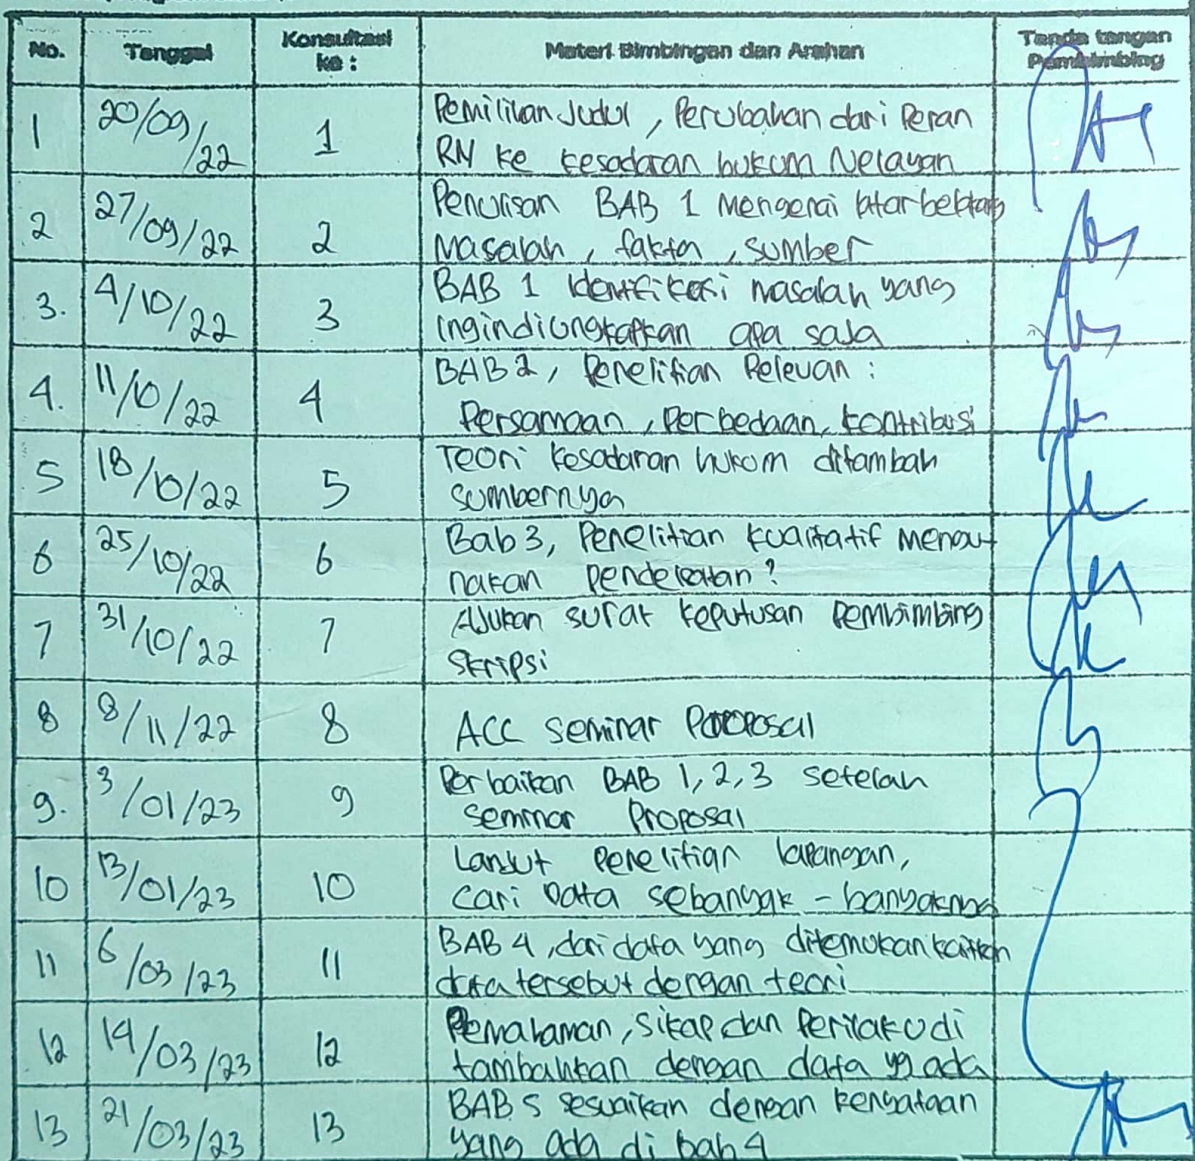 No. Tanggal Konsultasi ke : Materi Bimbingan dan Arahan Tanda tangan Pembimbing
1 20/09/22 1 Pemilihan Judul, Perubahan dari Peran
RN ke kesadaran hukum Nelayan
2 27/09/22 2 Penulisan BAB 1 Mengenai latar belakang
Masalah, fakta, sumber
3. 4/10/22 3 BAB 1 Identifikasi masalah yang
ingin diungkapkan apa saja
4. 11/10/22 4 BAB 2, Penelitian Relevan :
Persamaan, Perbedaan, kontribusi
5 18/10/22 5 Teori kesadaran hukum ditambah
sumbernya
6 25/10/22 6 Bab 3, Penelitian kualitatif menggu
nakan pendekatan?
7 31/10/22 7 Ajukan surat keputusan pembimbing
skripsi
8 8/11/22 8 ACC seminar Proposal
9. 3/01/23 9 Perbaikan BAB 1, 2, 3 setelah
seminar Proposal
10 13/01/23 10 Lanjut penelitian lapangan,
cari Data sebanyak - banyaknya
11 6/03/23 11 BAB 4, dari data yang ditemukan kaitkan
data tersebut dengan teori
12 14/03/23 12 Pemahaman, sikap dan Perilaku di
tambahkan dengan data yg ada
13 21/03/23 13 BAB 5 sesuaikan dengan kenyataan
yang ada di bab 4